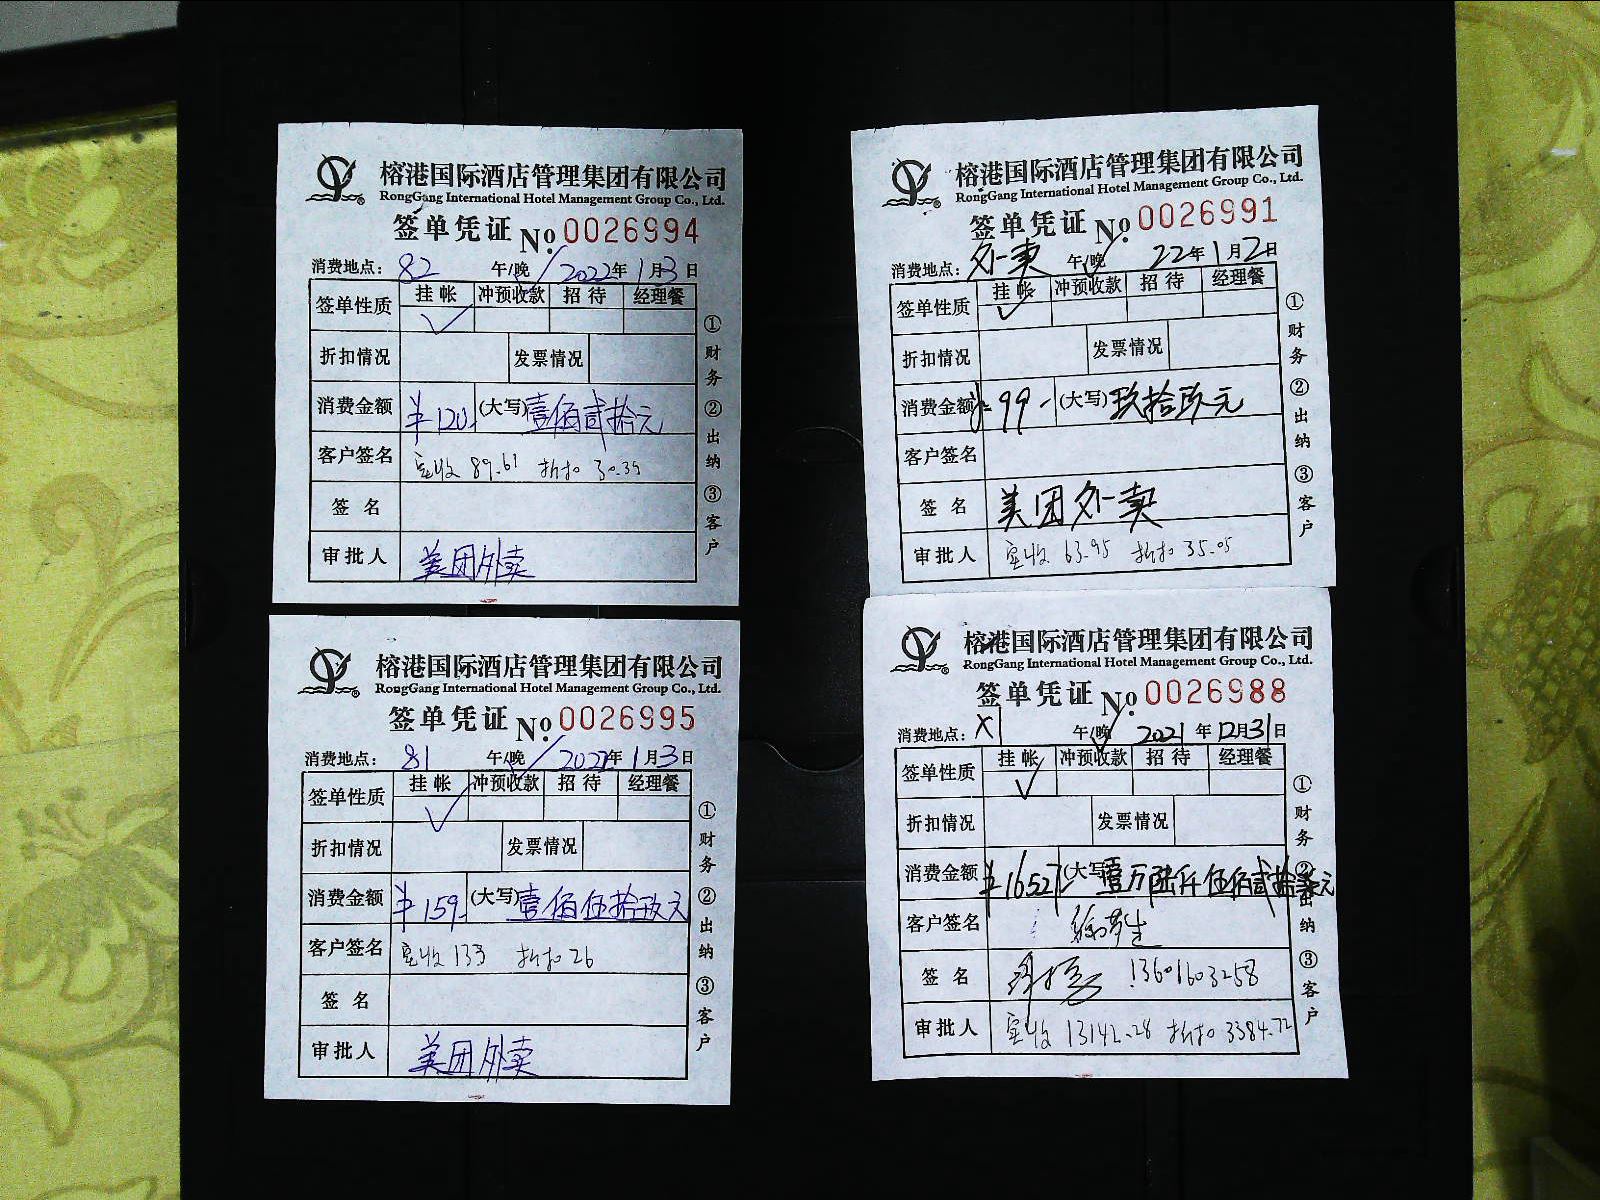 榕港国际酒店管理集团有限公司
RongGang International Hotel Management Group Co., Ltd.
签单凭证 No. 0026994
消费地点: 82 午/晚 ✓ 2022年1月3日
签单性质 挂帐 冲预收款 招待 经理餐
✓
折扣情况 发票情况
消费金额 ¥120 (大写)壹佰贰拾元
客户签名 实收 89.61 折扣 30.39
签名
审批人 美团外卖
①财务 ②出纳 ③客户
榕港国际酒店管理集团有限公司
RongGang International Hotel Management Group Co., Ltd.
签单凭证 No. 0026991
消费地点: 外卖 午/晚 ✓ 22年1月2日
签单性质 挂帐 冲预收款 招待 经理餐
✓
折扣情况 发票情况
消费金额 ¥99- (大写)玖拾玖元
客户签名
签名 美团外卖
审批人 实收 63.95 折扣 35.05
①财务 ②出纳 ③客户
榕港国际酒店管理集团有限公司
RongGang International Hotel Management Group Co., Ltd.
签单凭证 No. 0026995
消费地点: 81 午/晚 ✓ 2022年1月3日
签单性质 挂帐 冲预收款 招待 经理餐
✓
折扣情况 发票情况
消费金额 ¥159- (大写)壹佰伍拾玖元
客户签名 实收 133 折扣 26
签名
审批人 美团外卖
①财务 ②出纳 ③客户
榕港国际酒店管理集团有限公司
RongGang International Hotel Management Group Co., Ltd.
签单凭证 No. 0026988
消费地点: X1 午/晚 ✓ 2021年12月31日
签单性质 挂帐 冲预收款 招待 经理餐
✓
折扣情况 发票情况
消费金额 ¥16527- (大写)壹万陆仟伍佰贰拾柒元
客户签名
签名 13601603258
审批人 实收 13142.28 折扣 3384.72
①财务 ②出纳 ③客户